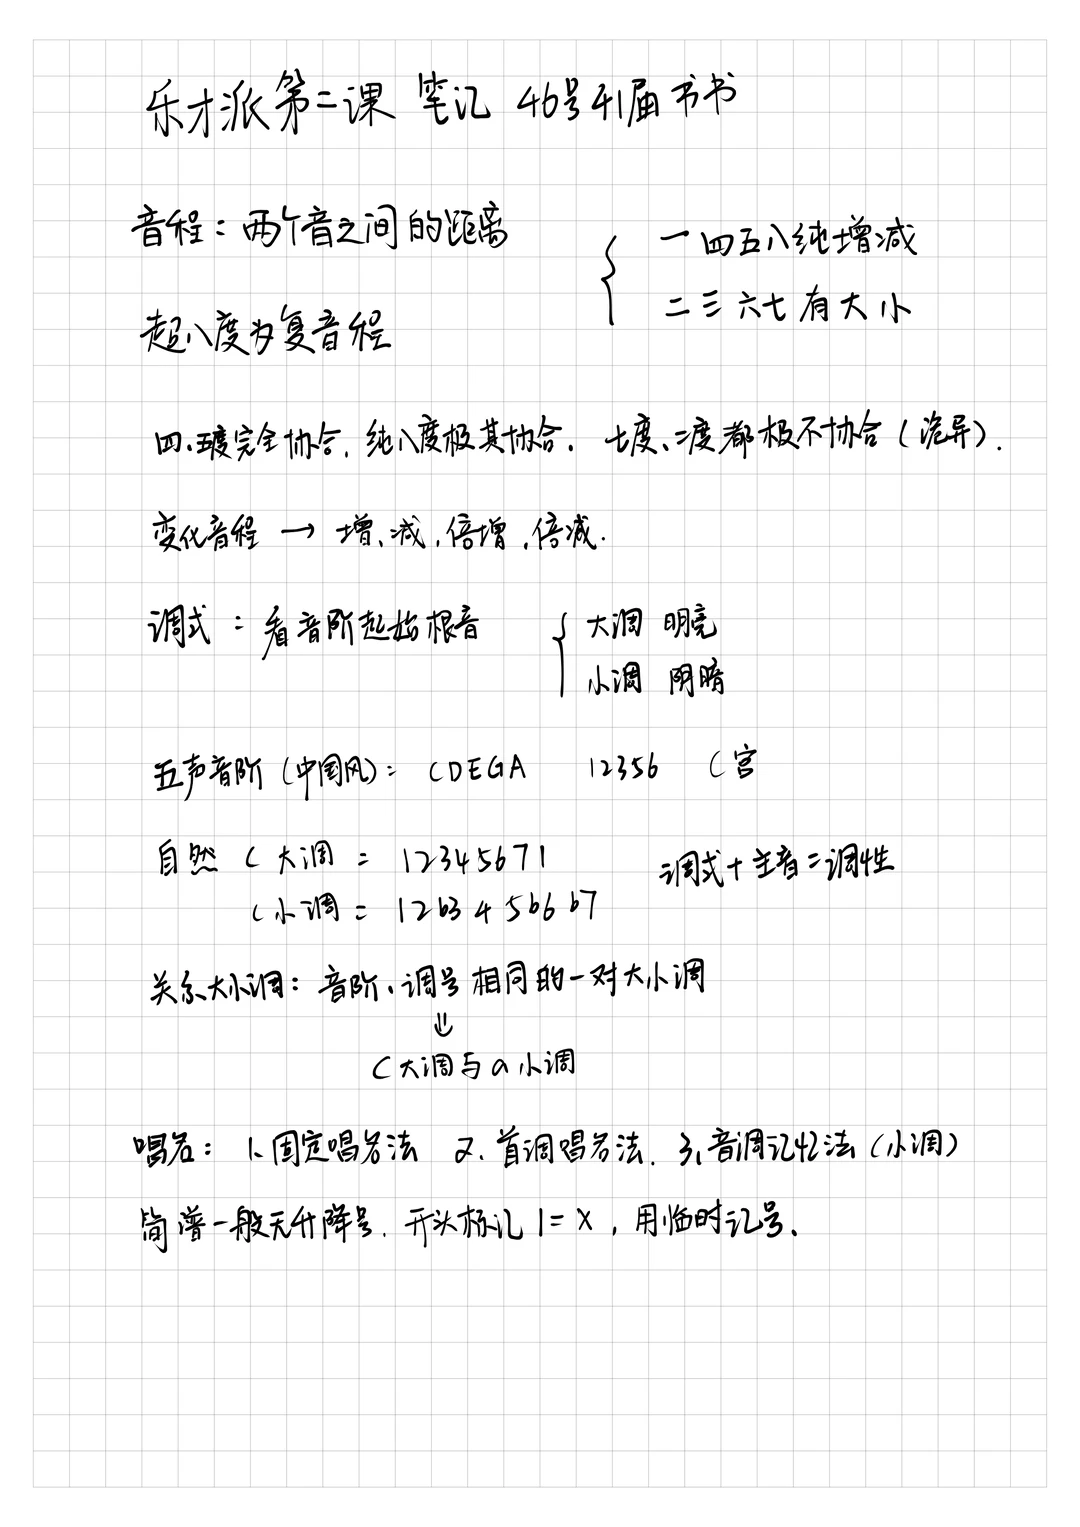 乐才派第二课 笔记 46号41届书书
音程：两个音之间的距离
一四五八纯增减
二三六七有大小
超八度为复音程
四、五度完全协合，纯八度极其协合． 七度、二度都极不协合（诡异）．
变化音程 → 增、减，倍增，倍减．
调式：看音阶起始根音
大调 明亮
小调 阴暗
五声音阶（中国风）： CDEGA 12356 C宫
自然 C大调 = 12345671
调式+主音=调性
C小调 = 12b3 4 5b6 b7
关系大小调：音阶、调号相同的一对大小调
⇓
C大调与a小调
唱名： 1、固定唱名法 2、首调唱名法． 3、音调记忆法（小调）
简谱一般无升降号．开头标记1=X，用临时记号、